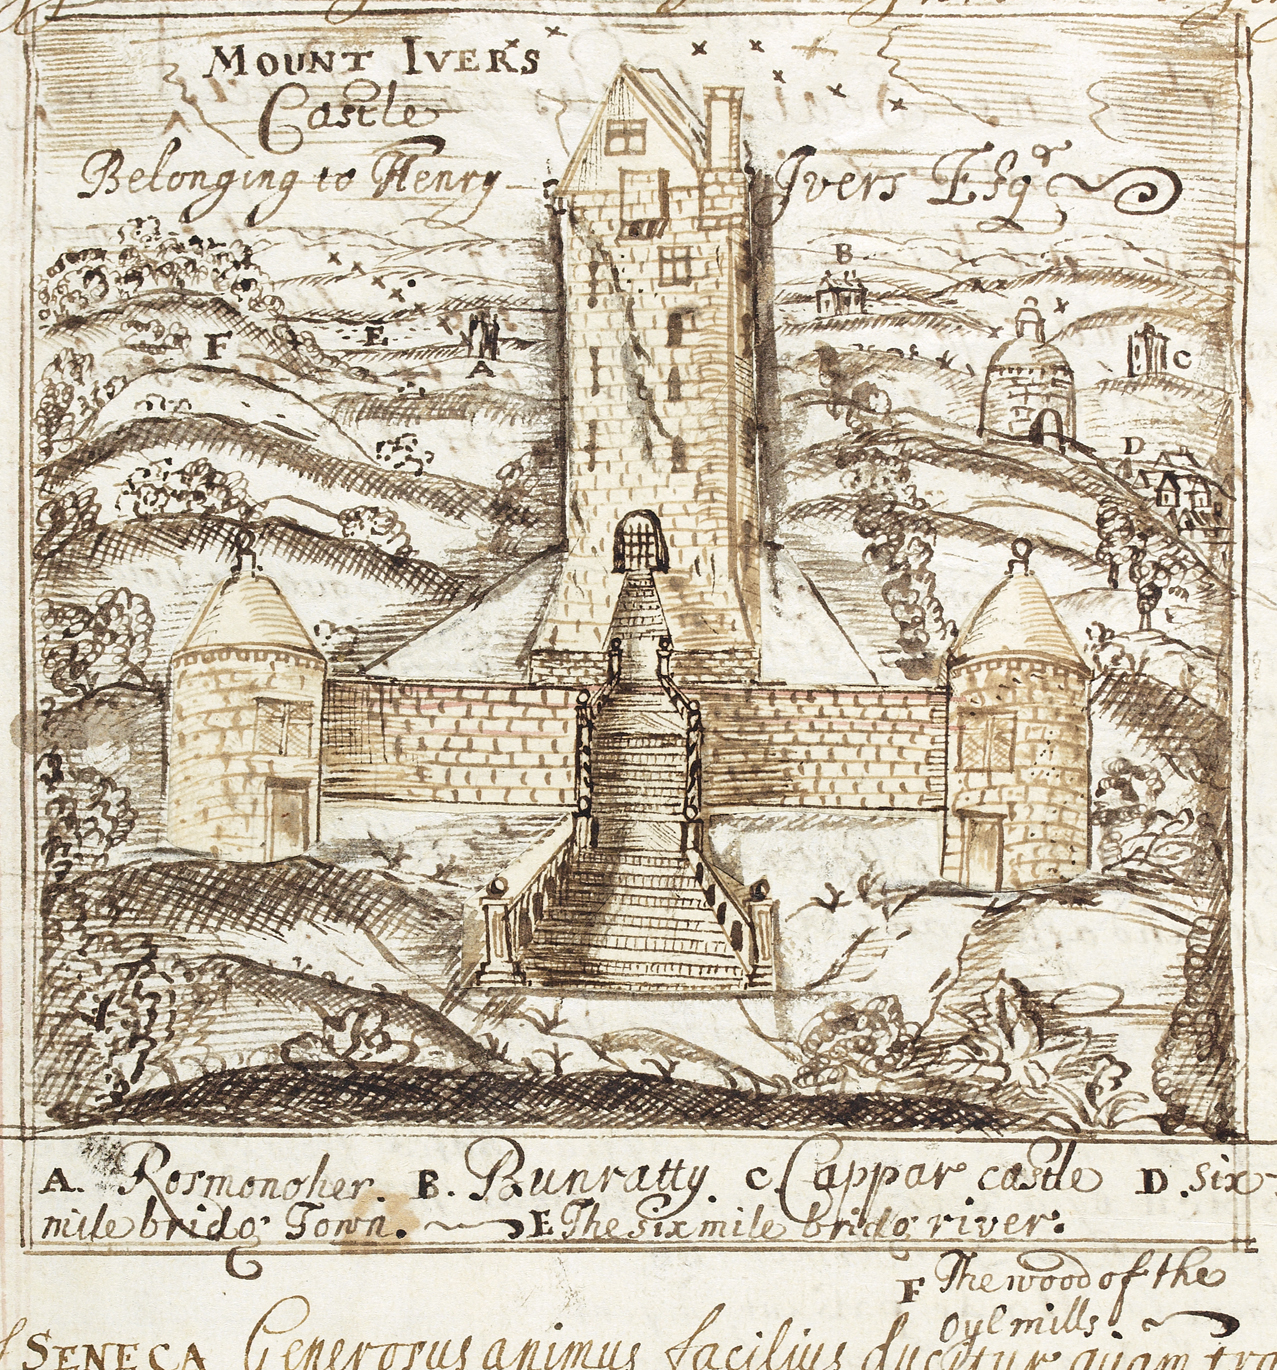 MOUNT IVERS
Castle
Belonging to Henry Ivers Esqr
B
F
E
A
C
D
A. Rosmonoher. B. Bunratty. C. Cappar castle D. six-
mile bridg Town. E The six mile bridg river.
F The wood of the
oyl mills.
SENECA Generosus animus facilius ducitur quam tra